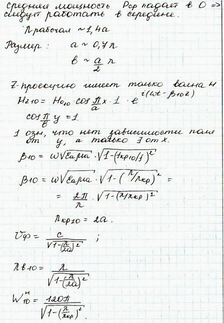 Средняя мощность Pср падает в 0 =>
следует работать в середине.
λ рабочая ~ 1,4a
Размер: a ~ 0,7λ
b ~ a/2 λ
Z-проекцию имеет только волна H
Hz10 = H010 cos π/a x · 1 · e^i(ωt - β10z)
cos 0π/b y = 1
1 озн., что нет зависимости поля
от y, а только з от x.
β10 = ω√εaμa · √1-(fкр10/f)²
β10 = ω√εaμa · √1-(λ/λкр)² =
= 2π/λ · √1-(λ/λкр)²
λкр10 = 2a.
Vф = c/√1-(λ/2a)² ;
λв10 = λ/√1-(λ/2a)²
W10^H = 120π/√1-(λ/λкр)²